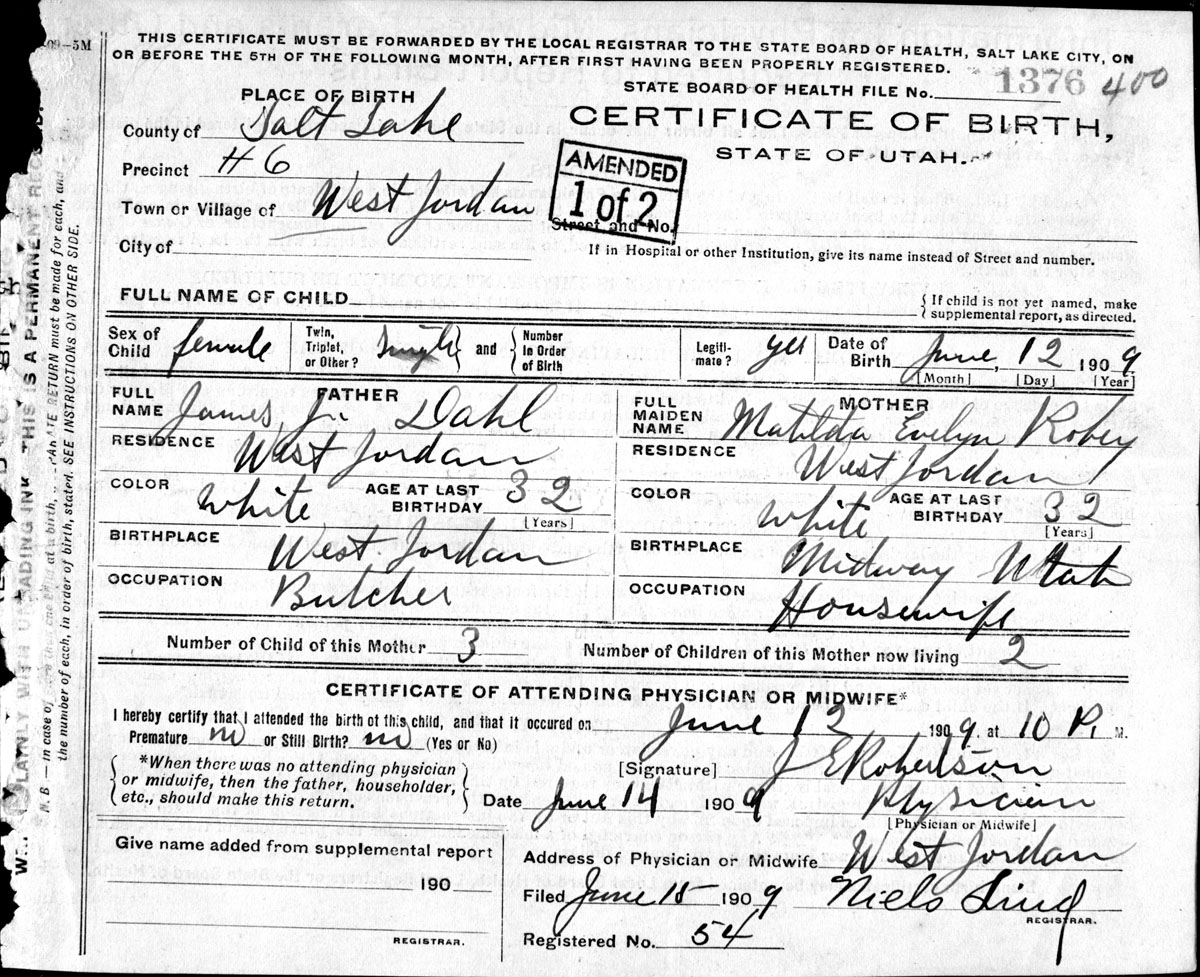 09-5M
THIS CERTIFICATE MUST BE FORWARDED BY THE LOCAL REGISTRAR TO THE STATE BOARD OF HEALTH, SALT LAKE CITY, ON
OR BEFORE THE 5TH OF THE FOLLOWING MONTH, AFTER FIRST HAVING BEEN PROPERLY REGISTERED.
STATE BOARD OF HEALTH FILE No. 1376 400
PLACE OF BIRTH
CERTIFICATE OF BIRTH,
STATE OF UTAH.
County of Salt Lake
Precinct #6
Town or Village of West Jordan
AMENDED
1 of 2
Street and No.
City of
If in Hospital or other Institution, give its name instead of Street and number.
FULL NAME OF CHILD
{ If child is not yet named, make
supplemental report, as directed.
Sex of Child female
Twin, Triplet, or Other? single } and { Number in Order of Birth
Legiti-mate? yes
Date of Birth June, 12 1909
[Month] [Day] [Year]
FATHER
FULL NAME James Jr. Dahl
RESIDENCE West Jordan
COLOR white AGE AT LAST BIRTHDAY 32
[Years]
BIRTHPLACE West Jordan
OCCUPATION Butcher
MOTHER
FULL MAIDEN NAME Matilda Evelyn Robey
RESIDENCE West Jordan
COLOR white AGE AT LAST BIRTHDAY 32
[Years]
BIRTHPLACE Midway Utah
OCCUPATION Housewife
Number of Child of this Mother 3 Number of Children of this Mother now living 2
CERTIFICATE OF ATTENDING PHYSICIAN OR MIDWIFE*
I hereby certify that I attended the birth of this child, and that it occured on June 12 1909, at 10 P. M.
Premature no or Still Birth? no (Yes or No)
{ *When there was no attending physician
or midwife, then the father, householder,
etc., should make this return. }
[Signature] J E Robertson
Date June 14 1909 Physician
[Physician or Midwife]
Give name added from supplemental report
190
REGISTRAR.
Address of Physician or Midwife West Jordan
Filed June 15 1909 Niels Lind
REGISTRAR.
Registered No. 54
THIS IS A PERMANENT
N. B.—In case of
at a birth,
RETURN must be made for each, and
the number of each, in order of birth, stated. SEE INSTRUCTIONS ON OTHER SIDE.